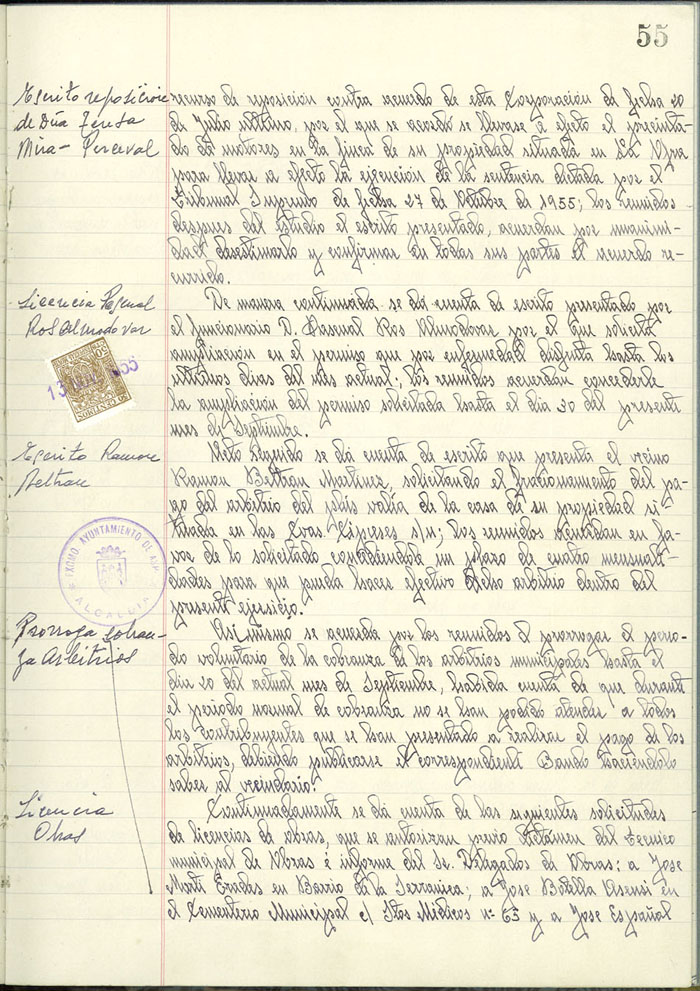 55
Escrito reposición
de Dña Teresa
Mira-Perceval
recurso de reposición contra acuerdo de esta Corporación de fecha 20
de Julio último, por el que se acordó se llevase a efecto el precinta-
do de motores en la finca de su propiedad situada en La
para llevar a efecto la ejecución de la sentencia dictada por el
Tribunal Supremo de fecha 27 de Octubre de 1955; los reunidos
despues del estudio el escrito presentado, acuerdan por unanimi-
dad desestimarlo y confirmar en todas sus partes el acuerdo re-
currido.
Licencia Pascual
Ros Almodovar
De manera continuada se dá cuenta de escrito presentado por
el funcionario D. Pascual Ros Almodovar por el que solicita
ampliación en el permiso que por enfermedad disfruta hasta los
últimos dias del mes actual; los reunidos acuerdan concederle
la ampliación del permiso solicitada hasta el dia 30 del presente
mes de Septiembre.
Escrito Ramon
Beltran
Acto seguido se dá cuenta de escrito que presenta el vecino
Ramon Beltran Martinez, solicitando el fraccionamiento del pa-
go del arbitrio del plus valía de la casa de su propiedad si-
tuada en las Cvas. Cipreses s/n; los reunidos acuerdan en fa-
vor de lo solicitado concediendole un plazo de cuatro mensuali-
dades para que pueda hacer efectivo dicho arbitrio dentro del
presente ejercicio.
EXCMO. AYUNTAMIENTO DE
ALCALDIA
Prorroga cobran-
za Arbitrios
Asi mismo se acuerda por los reunidos el prorrogar el perio-
do voluntario de la cobranza de los arbitrios municipales hasta el
dia 20 del actual mes de Septiembre, habida cuenta de que durante
el periodo normal de cobranza no se han podido atender a todos
los contribuyentes que se han presentado a realizar el pago de los
arbitrios, debiendo publicarse el correspondiente Bando haciéndolo
saber al vecindario.
Licencia
Obras
Continuadamente se dá cuenta de las siguientes solicitudes
de licencias de obras, que se autorizan previo dictámen del Tecnico
municipal de Obras é informe del Sr. Delegados de Obras: a Jose
Marti Erades en Barrio de la Serranica; a Jose Botella Asensi en
el Cementerio Municipal c/ Stos Médicos nº 63 y a Jose Español